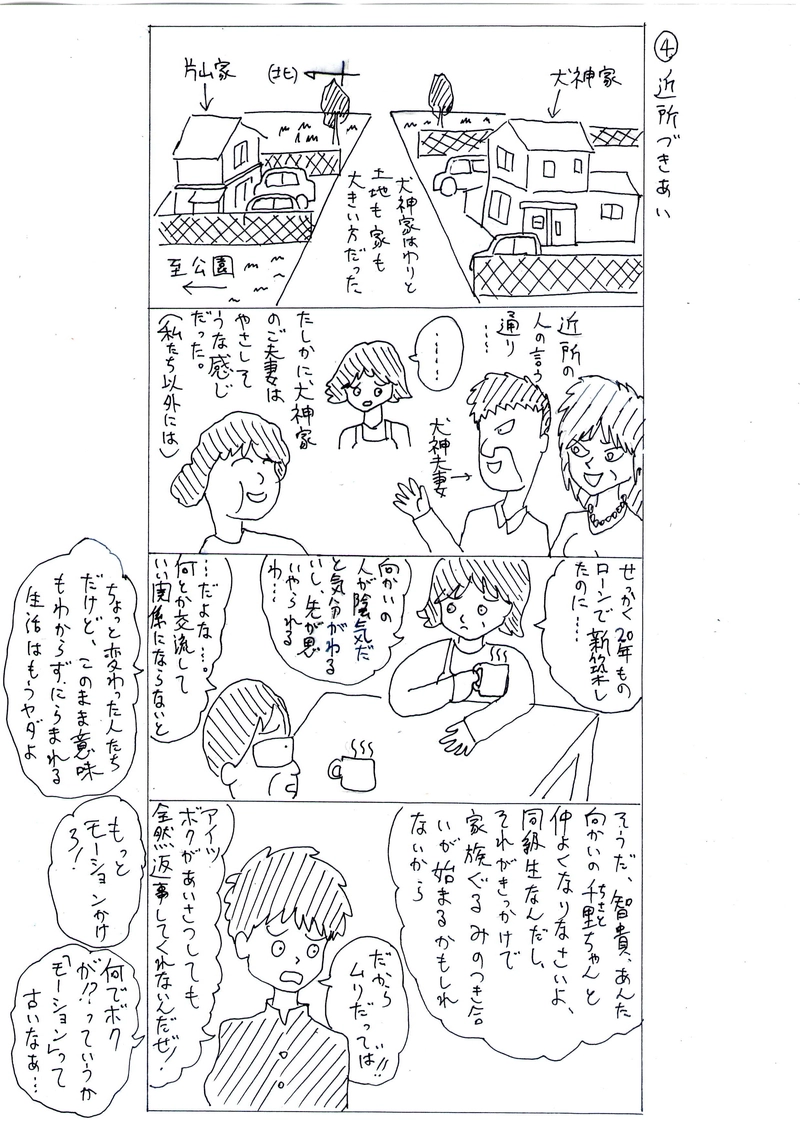 ④ 近所づきあい
犬神家
(北)
片山家
犬神家はわりと
土地も家も
大きい方だった
至公園
近所の
人の言う
通り
……
犬神夫妻
……
たしかに、犬神家
のご夫妻は
やさして
うな感じ
だった。
(私たち以外には)
せっかく20年もの
ローンで新築し
たのに……
向かいの
人が陰気だ
と気分がわる
いし、先が思
いやられる
わ…
…だよな…。
何とか交流して
いい関係にならないと
ちょっと変わった人たち
だけど、このまま意味
もわからずにらまれる
生活はもうヤダよ
そうだ、智貴、あんた
向かいの千里ちゃんと
ちさと
仲よくなりなさいよ、
同級生なんだし、
それがきっかけで
家族ぐるみのつき合
いが始まるかもしれ
ないから
だから
ムリだってば!!
アイツ
ボクがあいさつしても
全然返事してくれないんだぜ!
もっと
モーションかけ
ろ!
何でボク
が!?っていうか
「モーション」って
古いなぁ…